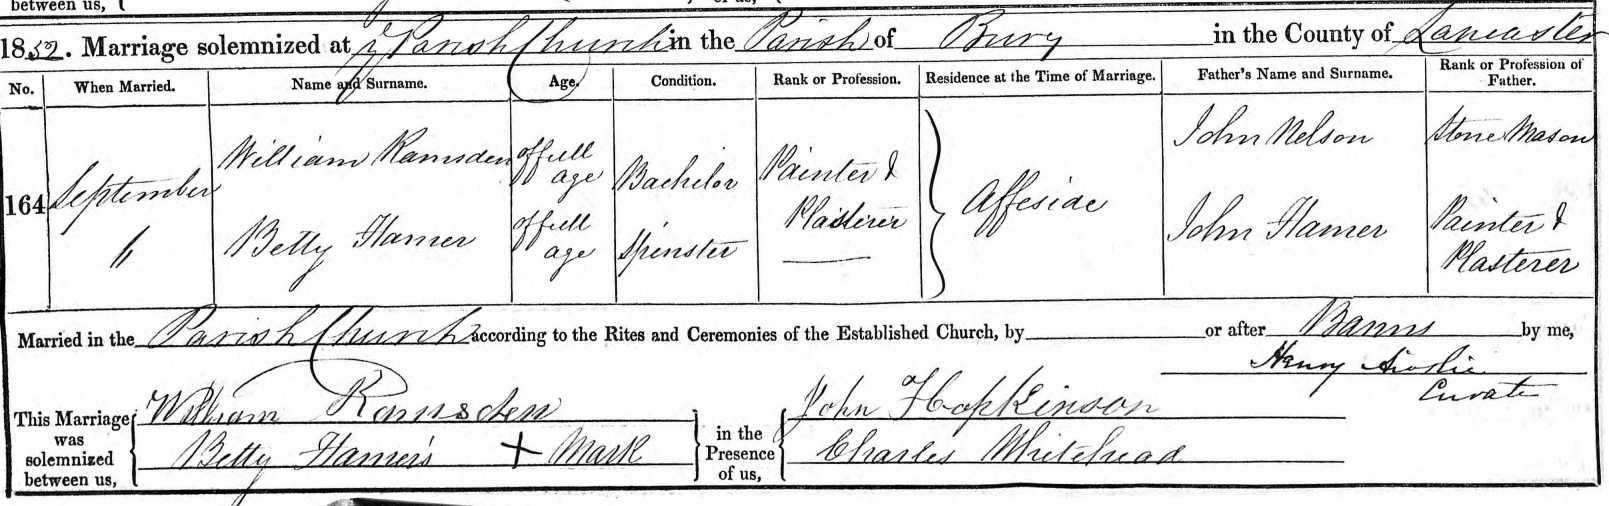 between us,
of us,
1852. Marriage solemnized at ye Parish Church in the Parish of Bury in the County of Lancaster
No. When Married. Name and Surname. Age. Condition. Rank or Profession. Residence at the Time of Marriage. Father's Name and Surname. Rank or Profession of Father.
164 September
William Ramsden of full age Bachelor Painter & Plasterer Affeside John Nelson Stone Mason
Betty Hamer of full age Spinster John Hamer Painter & Plasterer
Married in the Parish Church according to the Rites and Ceremonies of the Established Church, by or after Banns by me,
Henry Ainslie
Curate
This Marriage was solemnized between us,
William Ramsden
Betty Hamer's + Mark
in the Presence of us,
John Hopkinson
Charles Whitehead